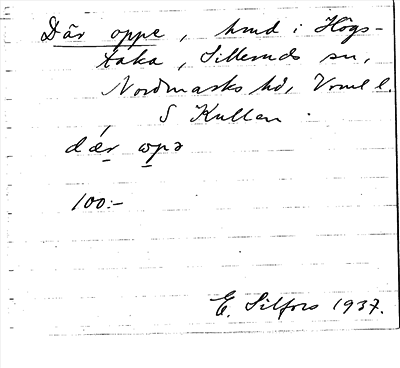 Där oppe, hmd i Högs-
taka, Silleruds sn,
Nordmarks hd, Vrml l.
S Kullen.
dǽr ωpə
100:-
E. Silfors 1937.